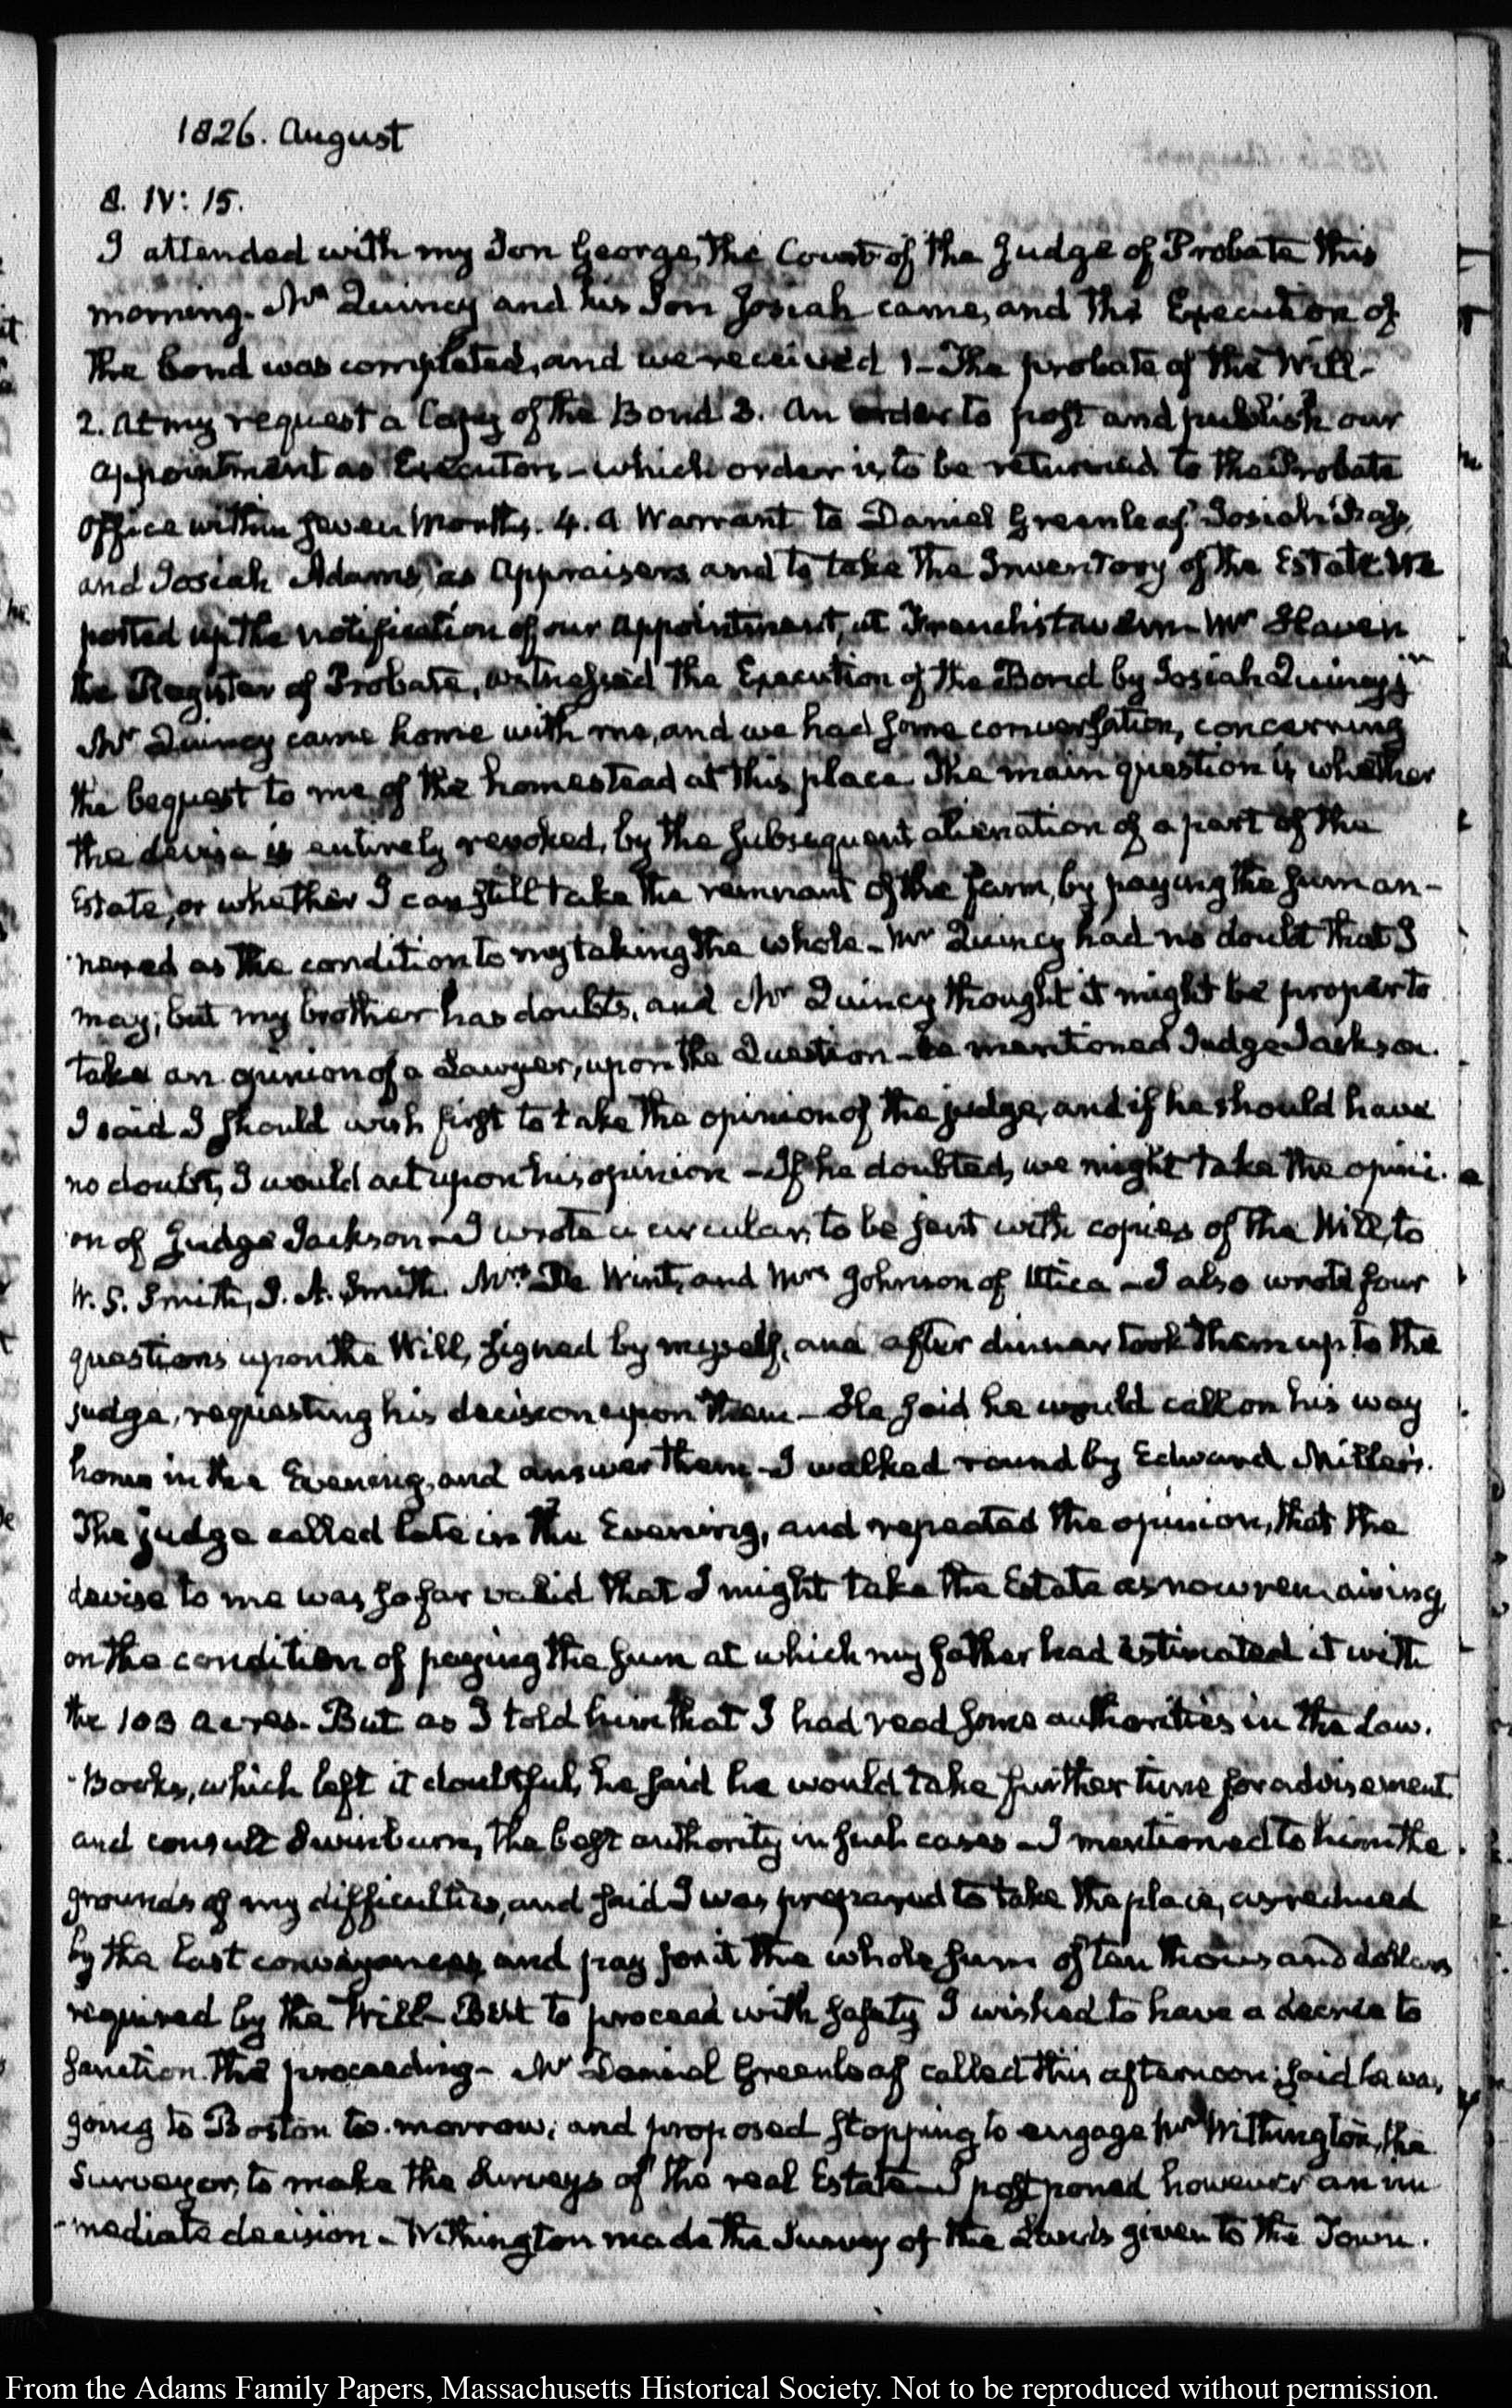 1826. August
8. IV: 15.
I attended with my Son George, the Court of the Judge of Probate this
morning. Mr Quincy and his Son Josiah came, and the Execution of
the bond was completed, and we received 1 - The probate of the Will -
2. At my request a Copy of the Bond 3. An order to post and publish our
appointment as Executors - which order is to be returned to the Probate
Office within seven Months. 4. A Warrant to Daniel Greenleaf, Josiah
and Josiah Adams, as Appraisers and to take the Inventory of the Estate. We
posted up the notification of our appointment, at French's tavern - Mr Haven
the Register of Probate, witnessed the Execution of the Bond by Josiah Quincy jr
Mr Quincy came home with me, and we had some conversation, concerning
the bequest to me of the homestead at this place. The main question is whether
the devise is entirely revoked, by the subsequent alienation of a part of the
Estate, or whether I can still take the remnant of the farm, by paying the sum an-
nexed as the condition to my taking the whole - Mr Quincy had no doubt that I
may; but my brother has doubts, and Mr Quincy thought it might be proper to
take an opinion of a Lawyer, upon the Question - he mentioned Judge Jackson.
I said I should wish first to take the opinion of the judge, and if he should have
no doubt, I would act upon his opinion - If he doubted, we might take the opini-
on of Judge Jackson - I wrote a circular, to be sent with copies of the Will, to
W. S. Smith, J. A. Smith. Mrs De Wint, and Mrs Johnson of Utica - I also wrote four
questions upon the Will, signed by myself, and after dinner took them up to the
judge, requesting his decision upon them - He said he would call on his way
home in the Evening, and answer them - I walked round by Edward Miller's.
The judge called late in the Evening, and repeated the opinion, that the
devise to me was so far valid that I might take the Estate as now remaining,
on the condition of paying the sum at which my father had estimated it with
the 103 acres. But as I told him that I had read some authorities in the Law.
-Books, which left it doubtful, he said he would take further time for advisement
and consult Swinburn, the best authority in such cases - I mentioned to him the
grounds of my difficulties, and said I was prepared to take the place, as reduced
by the last conveyances, and pay for it the whole sum of ten thousand dollars
required by the Will - But to proceed with safety I wished to have a decree to
sanction the proceeding - Mr Daniel Greenleaf called this afternoon; said he was
going to Boston to-morrow; and proposed stopping to engage Mr Withington, the
Surveyor, to make the Surveys of the real Estate - I postponed however an im-
-mediate decision - Withington made the Survey of the Lands given to the Town.
From the Adams Family Papers, Massachusetts Historical Society. Not to be reproduced without permission.